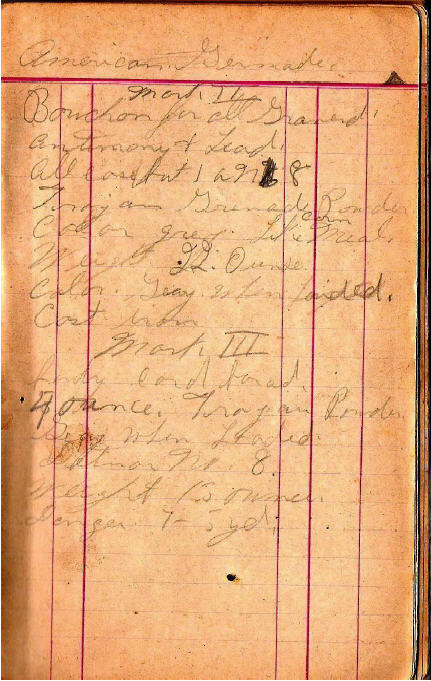 American Grenade.
Mark II
Bouchon for all Granerd.
Antimony & Lead.
All case but 1 a No 8
Trojan Grenade Powder
Color grey. Like corn Meal.
Weight 22. Ounce
Color. Gray when loaded.
Cast iron
Mark III
body Cord bord.
4 ounce. Trojan Powder.
Gray when Loaded.
No. 8.
Weight 15 ounce.
Danger 7-5 yd.